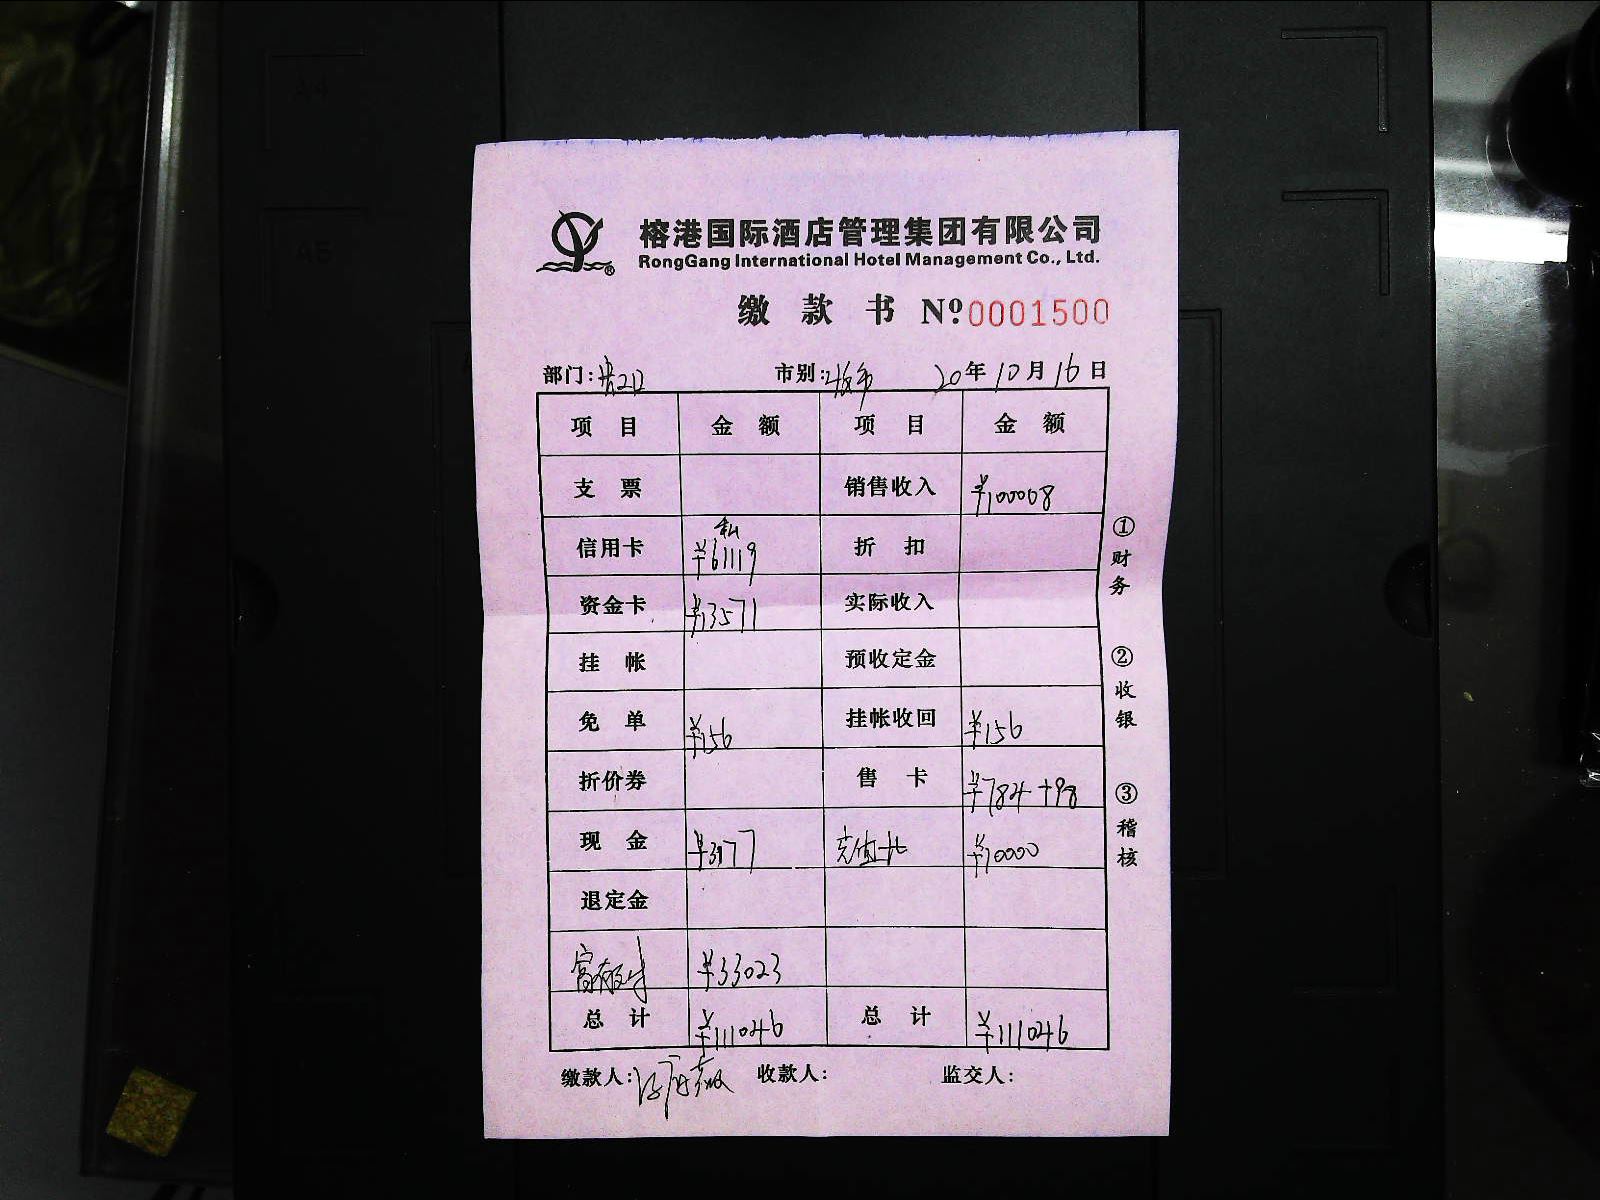 榕港国际酒店管理集团有限公司
RongGang International Hotel Management Co., Ltd.
缴款书 Nº 0001500
部门: 市别: 20年10月16日
项目 金额 项目 金额
支票 销售收入 ¥100008
信用卡 私 ¥61119 折扣
资金卡 ¥13571 实际收入
挂帐 预收定金
免单 ¥156 挂帐收回 ¥156
折价券 售卡 ¥784+98
现金 ¥3177 充值卡 ¥10000
退定金
¥33023
总计 ¥111046 总计 ¥111046
缴款人: 收款人: 监交人:
①财务
②收银
③稽核
A4
A5